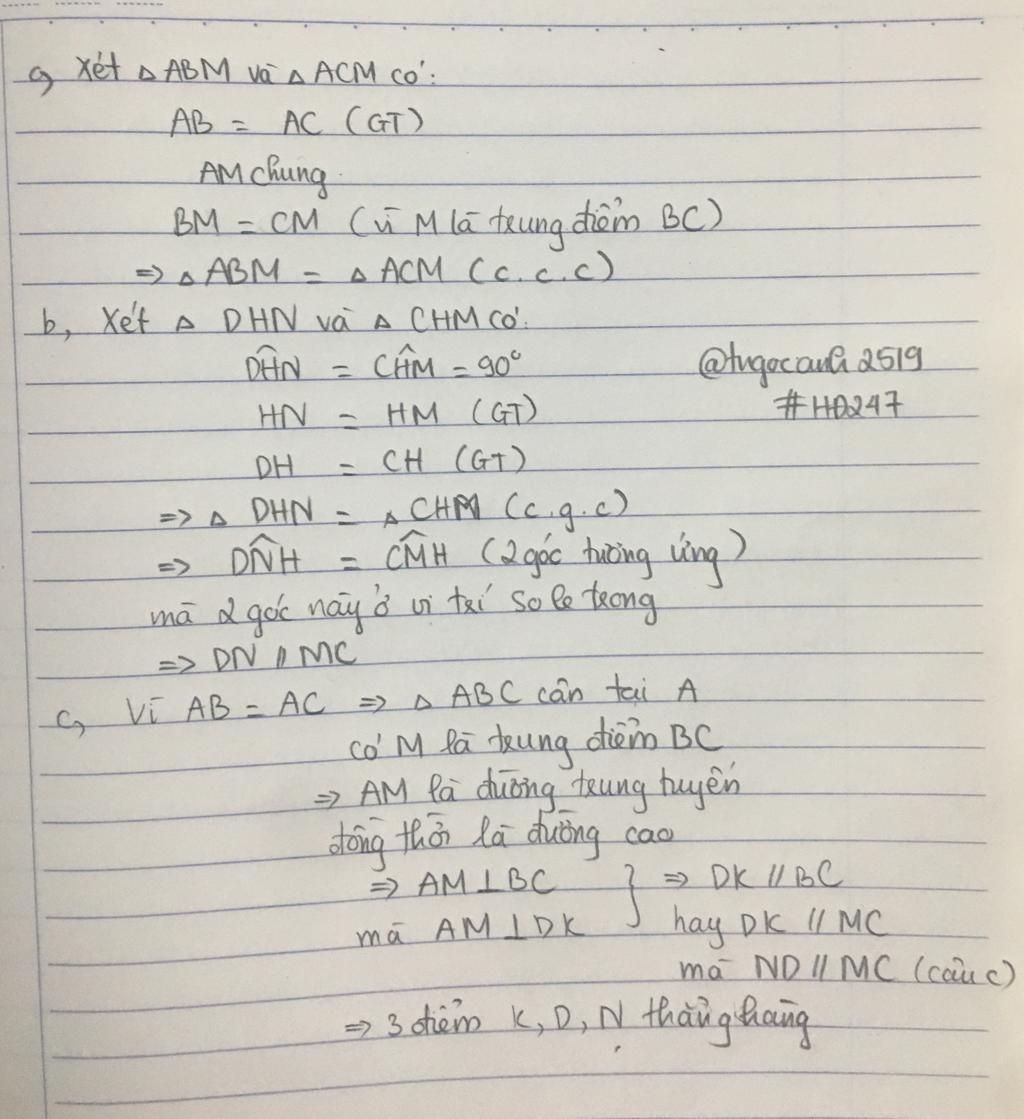 a, Xét △ ABM và △ ACM có:
AB = AC (GT)
AM chung
BM = CM (vì M là trung điểm BC)
=> △ ABM = △ ACM (c.c.c)
b, Xét △ DHN và △ CHM có:
DĤN = CĤM = 90°
@tvgocanh2519
HN = HM (GT)
#HĐ247
DH = CH (GT)
=> △ DHN = △ CHM (c.g.c)
=> DN̂H = CM̂H (2 góc tương ứng)
mà 2 góc này ở vị trí so le trong
=> DN // MC
c, Vì AB = AC => △ ABC cân tại A
có M là trung điểm BC
=> AM là đường trung tuyến
đồng thời là đường cao
=> AM ⊥ BC } => DK // BC
mà AM ⊥ DK hay DK // MC
mà ND // MC (câu c)
=> 3 điểm K, D, N thẳng hàng